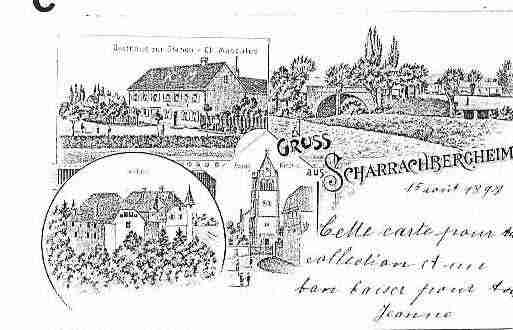 C
Gasthaus zur Sternen - Ch.
GRUSS
AUS
SCHARRACHBERGHEIM
15 août 1898
Cette carte pour ta
collection et un
bon baiser pour toi
Jeanne